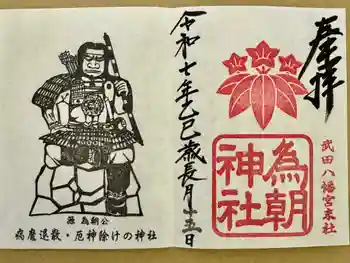 奉拝
武田八幡宮末社
為朝
神社
令和七年乙巳歳長月十五日
源為朝公
病魔退散・厄神除けの神社